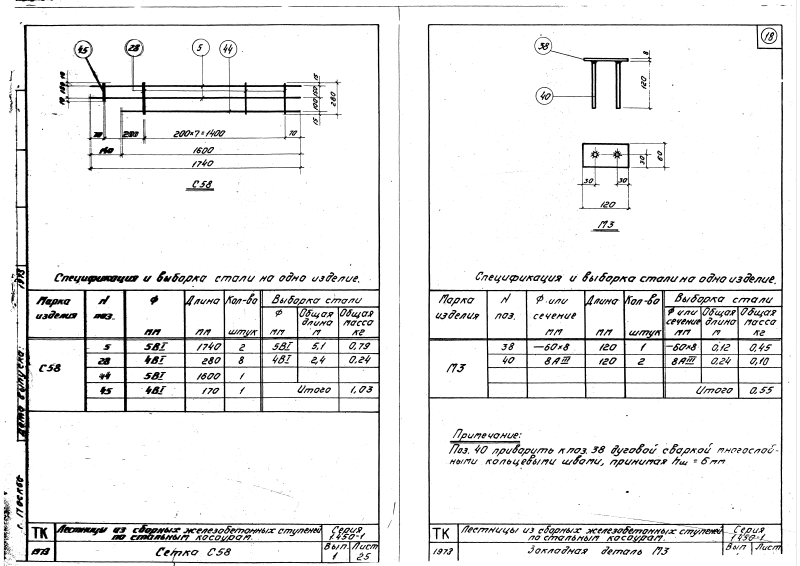 45 28 5 44
15 100 160 15 280
70 200 200×7=1400 70
140 1600
1740
С58
Спецификация и выборка стали на одно изделие.
Марка изделия N поз. Ф мм Длина мм Кол-во штук Выборка стали
Ф мм Общая длина м Общая масса кг
С58
5 5ВI 1740 2 5ВI 5,1 0,79
28 4ВI 280 8 4ВI 2,4 0,24
44 5ВI 1600 1
45 4ВI 170 1 Итого 1,03
ТК Лестницы из сборных железобетонных ступеней
по стальным косоурам.
Серия
1.450-1
1973 Сетка С58 Вып. Лист
1 25
г. Москва
1973
18
38
40
8
120
60
30
30 30
120
М3
Спецификация и выборка стали на одно изделие.
Марка изделия N поз. Ф или сечение мм Длина мм Кол-во штук Выборка стали
Ф или сечение мм Общая длина м Общая масса кг
М3
38 —60×8 120 1 —60×8 0,12 0,45
40 8АIII 120 2 8АIII 0,24 0,10
Итого 0,55
Примечание:
Поз. 40 приварить к поз. 38 дуговой сваркой многослой-
ными кольцевыми швами, принимая hш = 6 мм
ТК Лестницы из сборных железобетонных ступеней
по стальным косоурам.
Серия
1.450-1
1973 Закладная деталь М3 Вып Лист